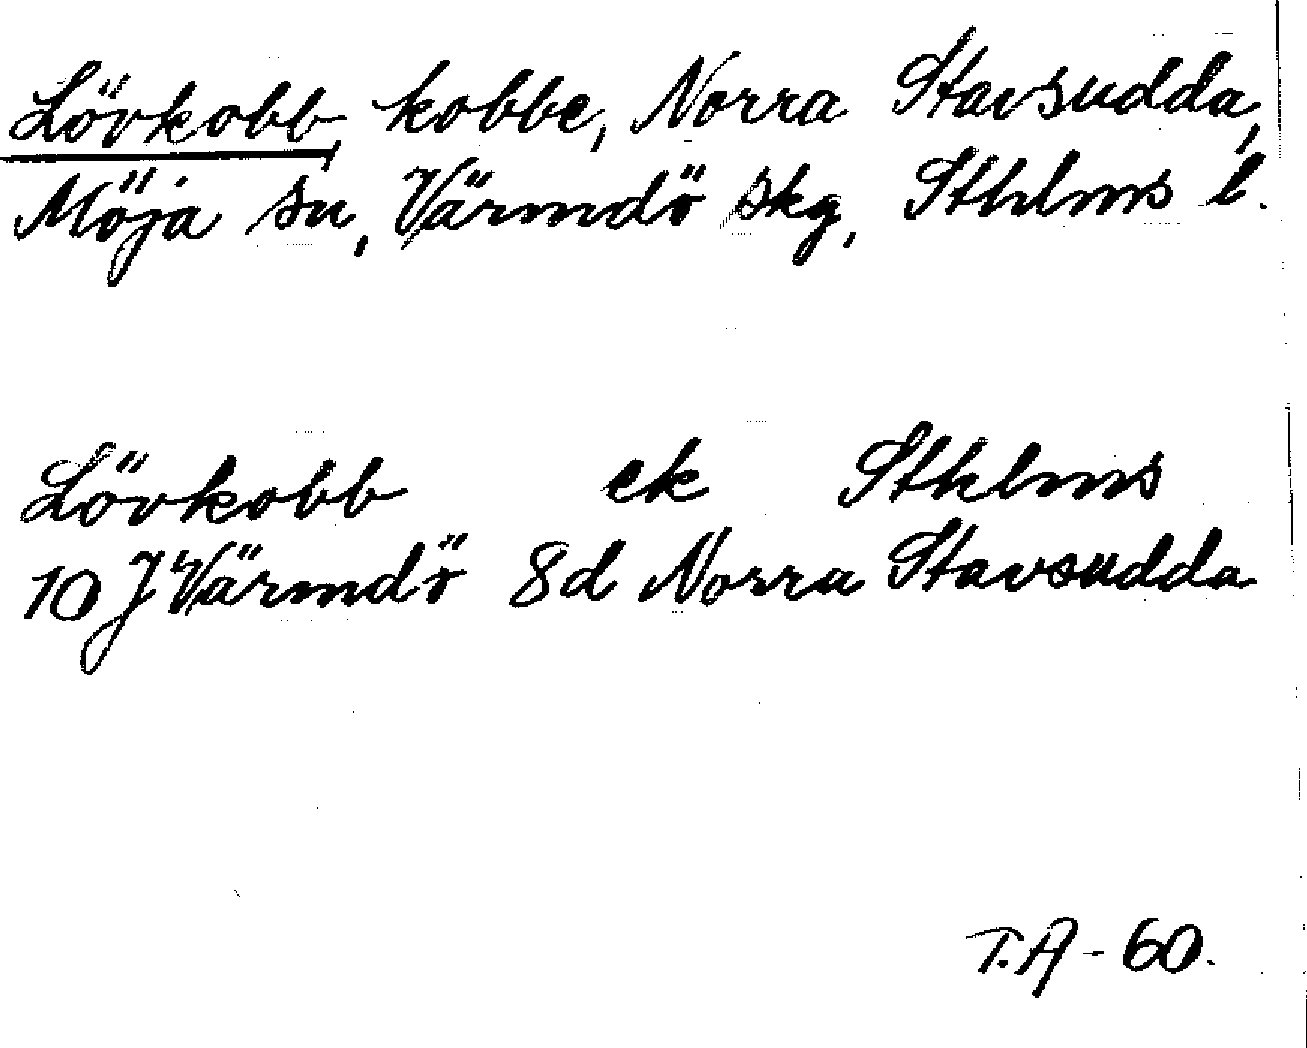 Lövkobb, kobbe, Norra Stavsudda,
Möja sn, Värmdö skg, Sthlms l.
Lövkobb ek Sthlms
10 J Värmdö 8d Norra Stavsudda
T.A - 60.